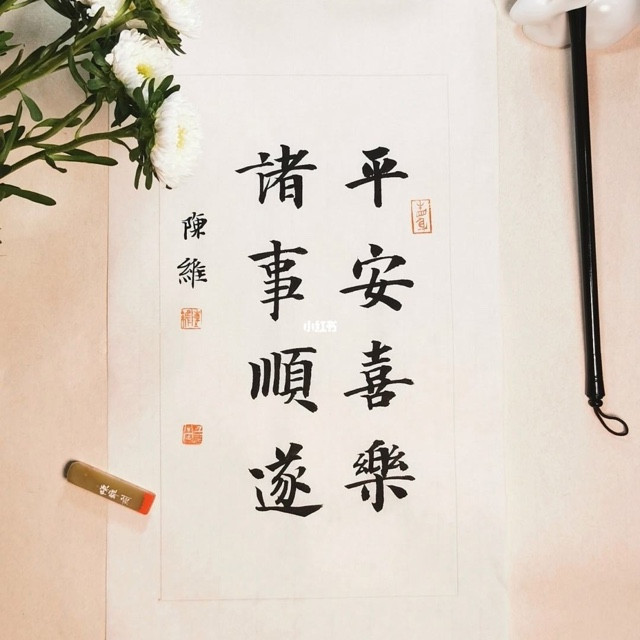 平安喜樂
諸事順遂
陳維
小红书